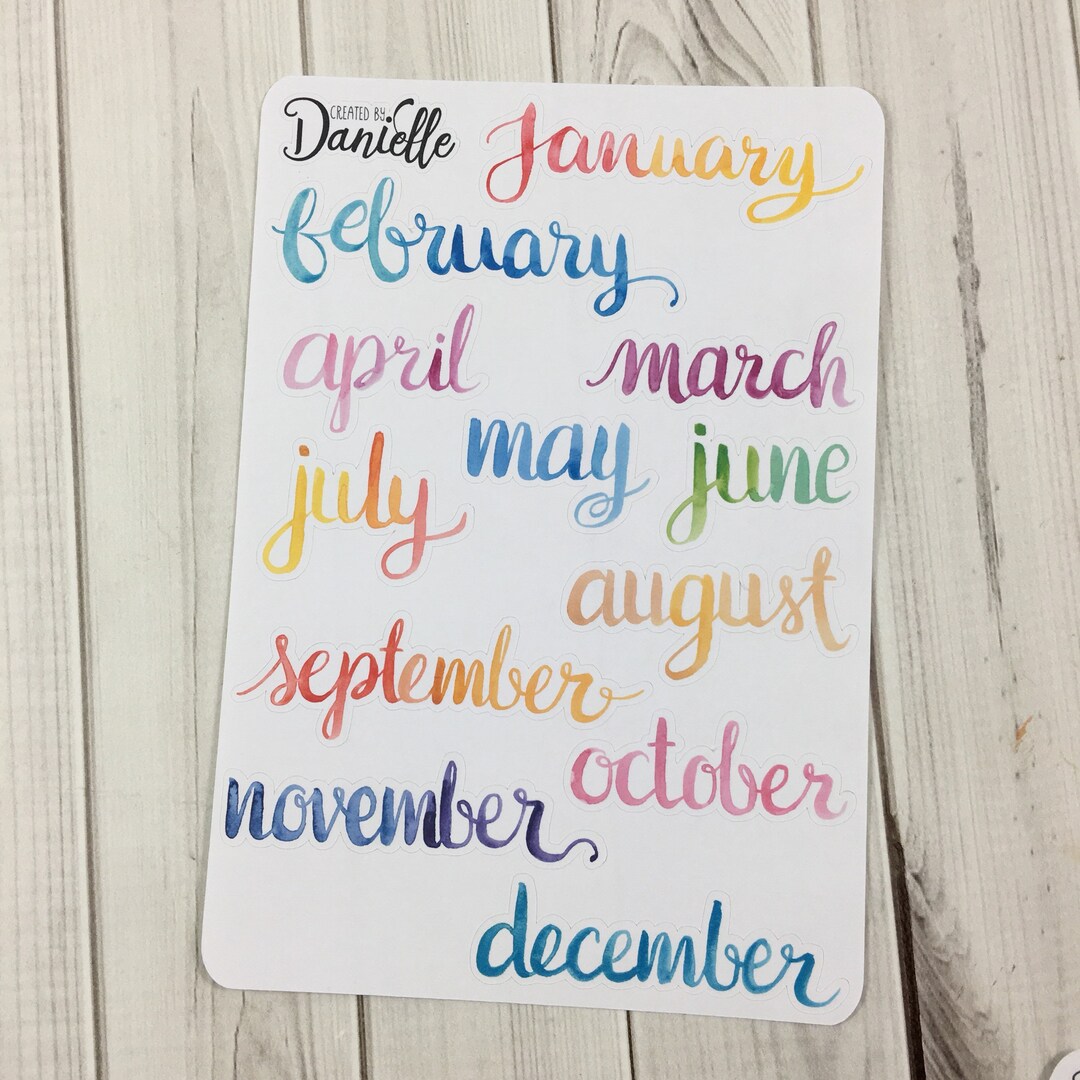 CREATED BY
Danielle
january
february
april
march
may
june
july
august
september
october
november
december